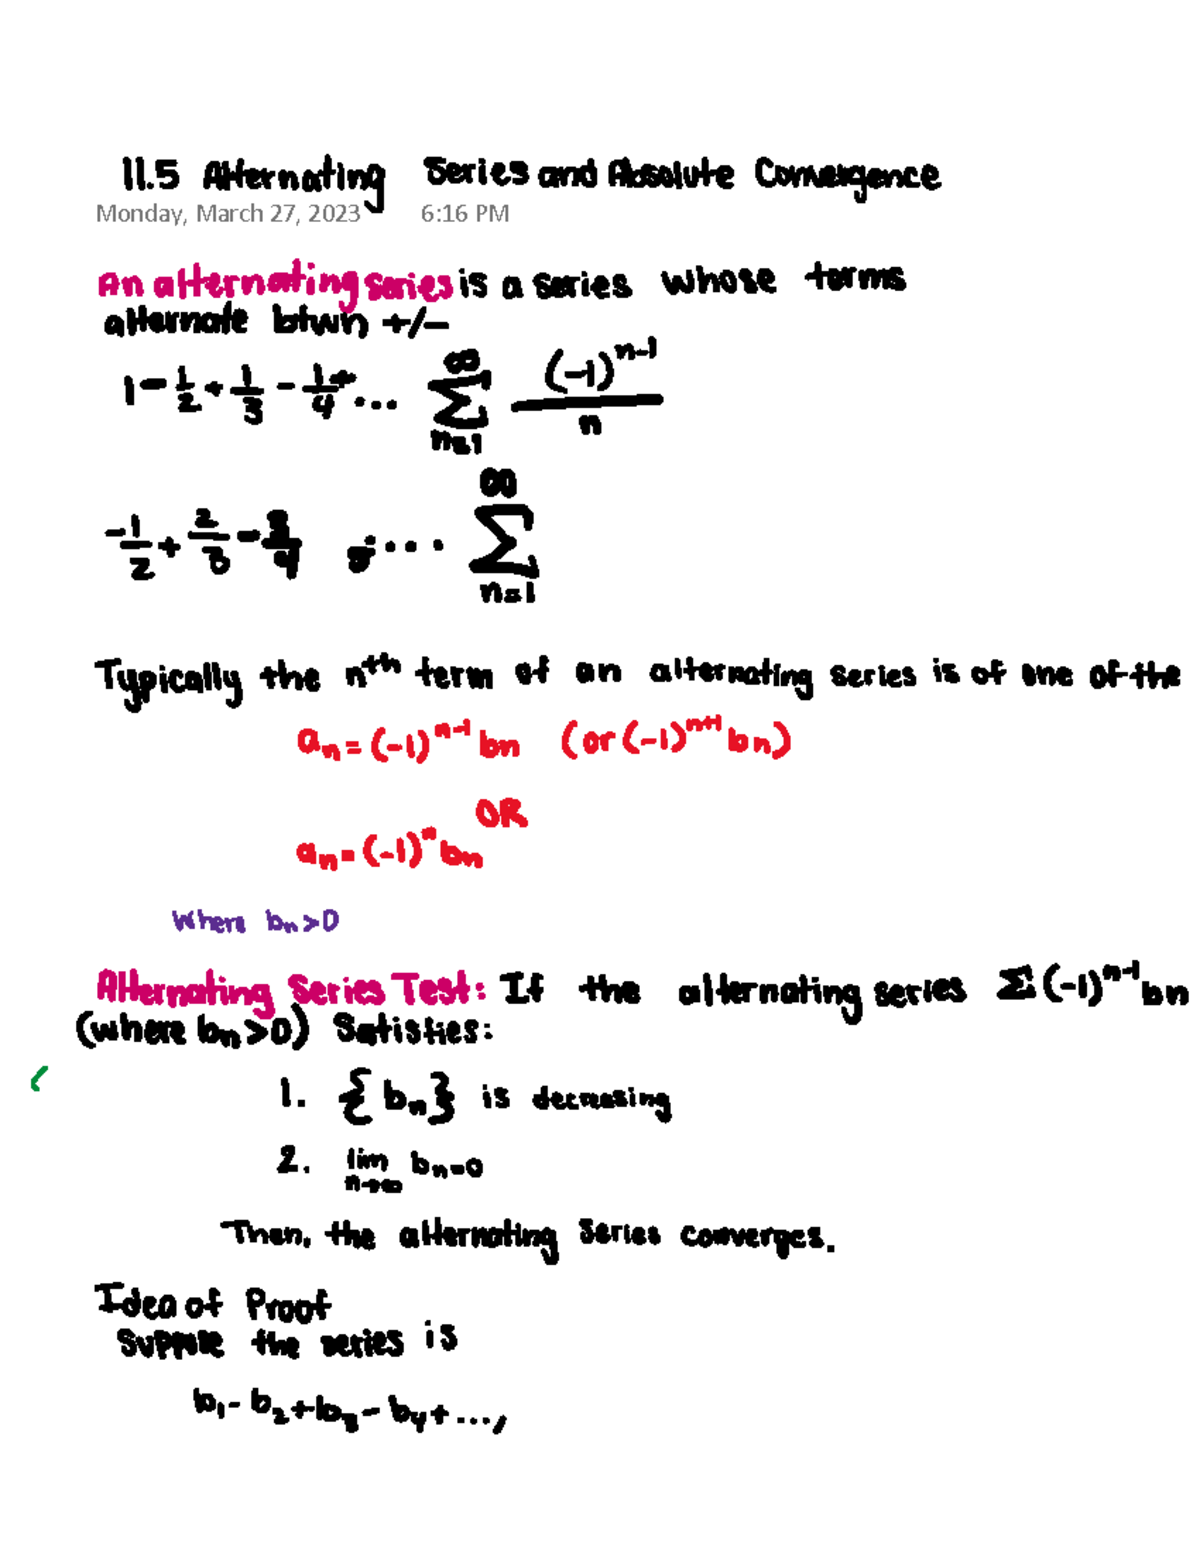 11.5 Alternating Series and Absolute Convergence
Monday, March 27, 2023 6:16 PM
An alternating series is a series whose terms
alternate btwn +/-
1 - 1/2 + 1/3 - 1/4 + ... ∑_{n=1}^{∞} (-1)^{n-1}/n
-1/2 + 2/3 - 3/4 ... ∑_{n=1}^{∞}
Typically the nth term of an alternating series is of one of the
a_n = (-1)^{n-1} b_n (or (-1)^{n+1} b_n)
OR
a_n = (-1)^n b_n
Where b_n > 0
Alternating Series Test: If the alternating series ∑(-1)^{n-1} b_n
(where b_n > 0) Satisfies:
1. {b_n} is decreasing
2. lim_{n→∞} b_n = 0
Then, the alternating series converges.
Idea of Proof
Suppose the series is
b_1 - b_2 + b_3 - b_4 + ...,